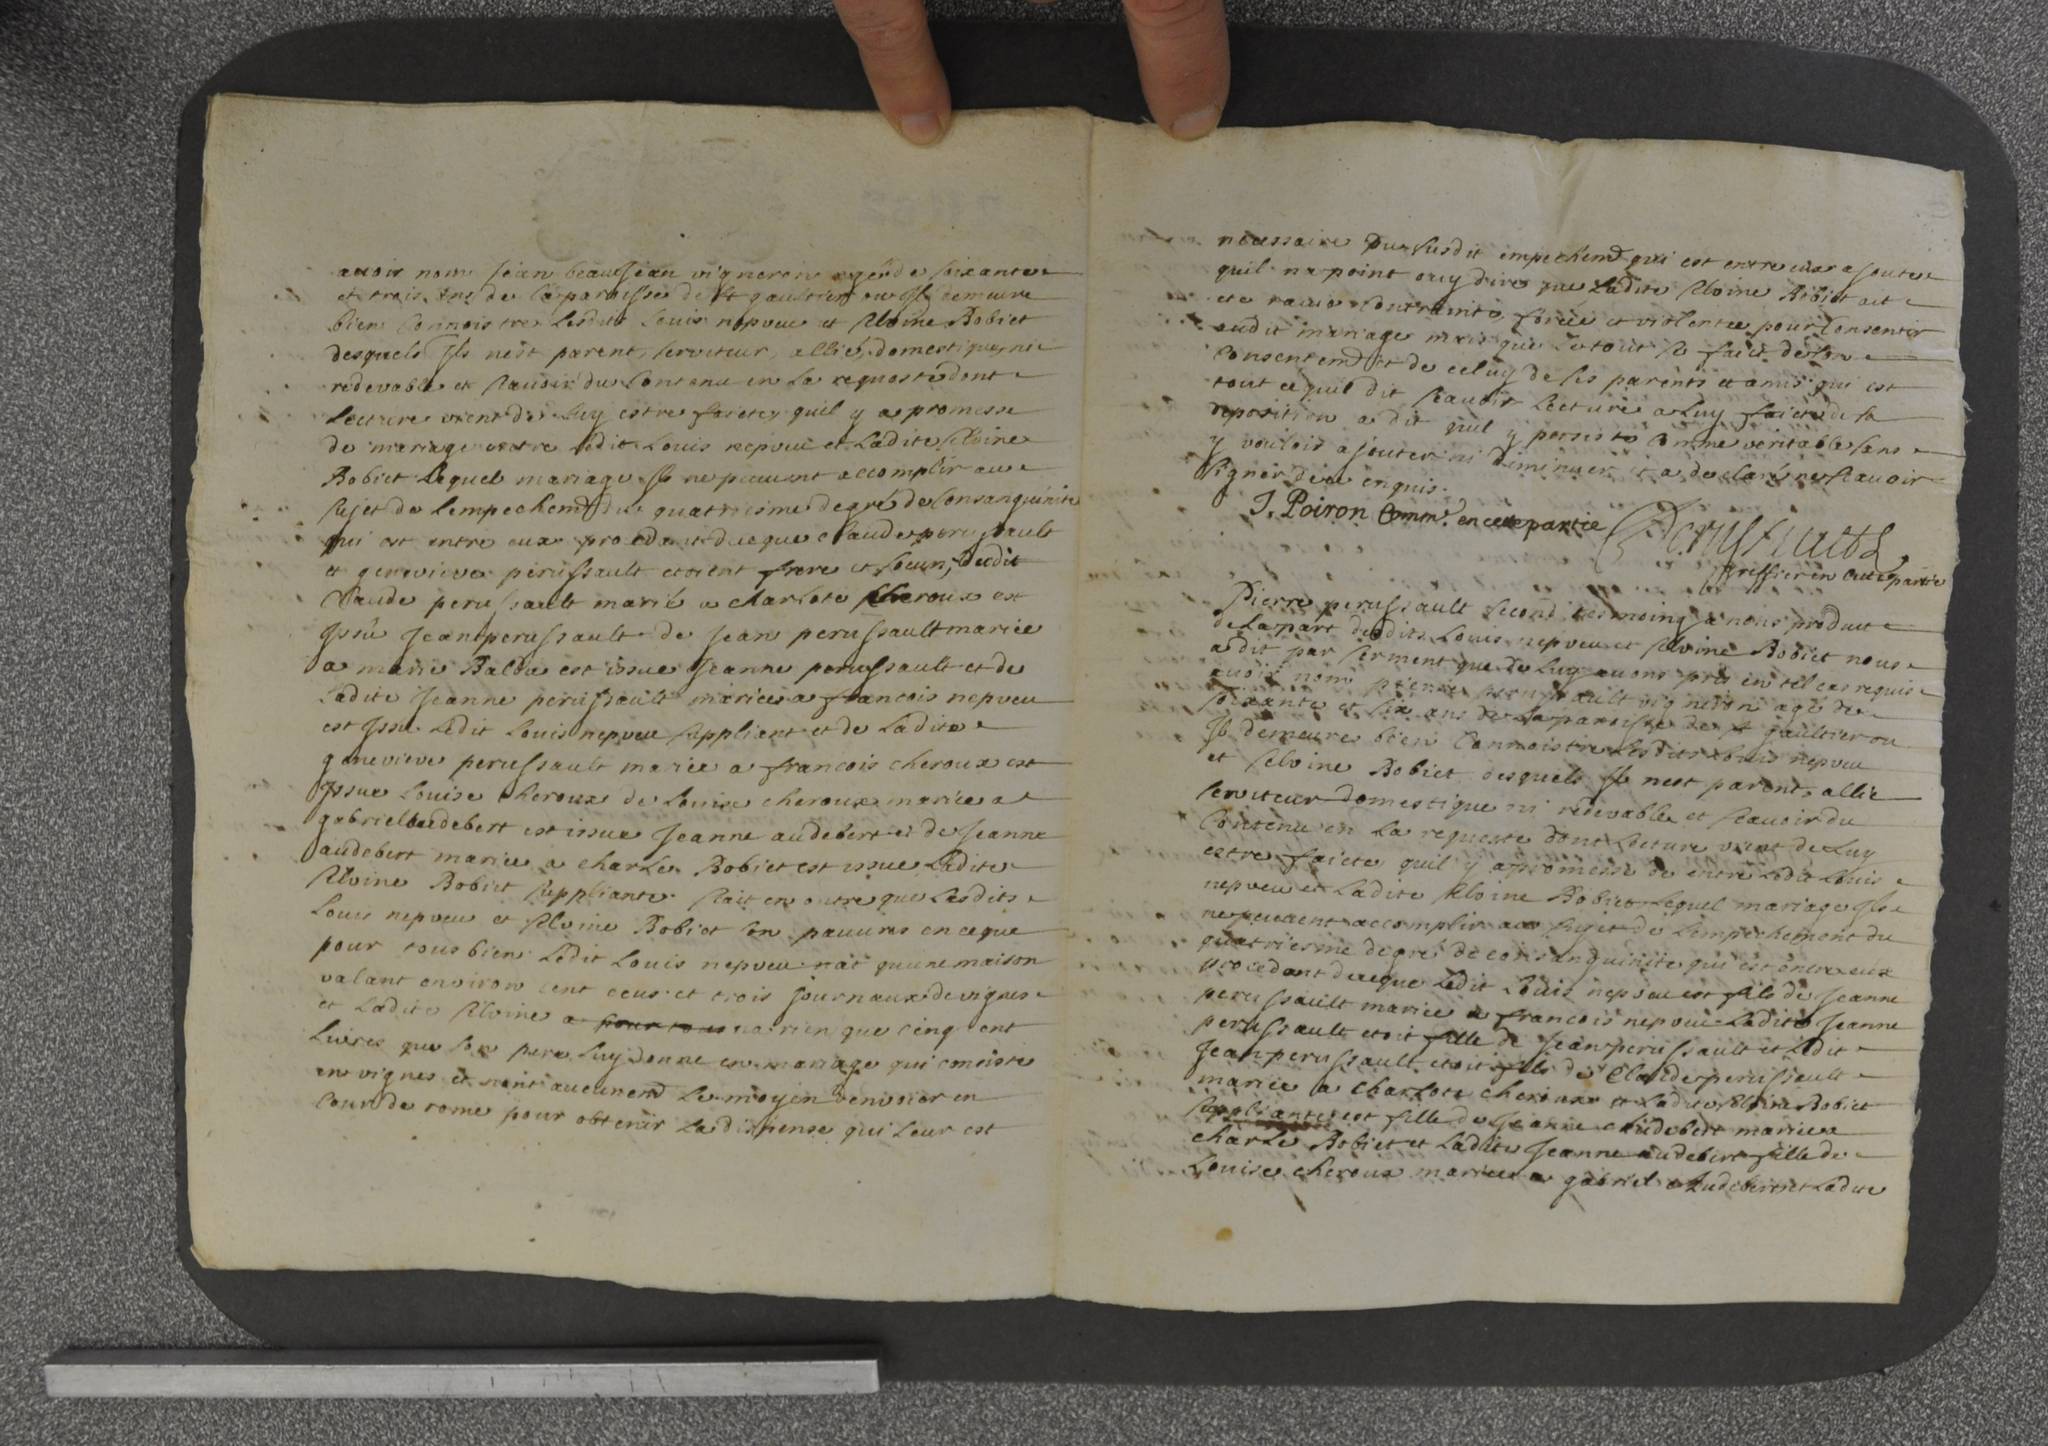 avoir nom Jean beauJeau vigneron agé de soixante
et trois ans de la paroisse de st gaultier ou Jl demeure
bien Connoistre lesdits Louis nepveu et Silvine Bobiet
desquels Jls nest parent, serviteur, allié, domestique, ni
redevable et scavoir du Contenu en la requeste dont
Lecture vient de luy estre faicte, quil y a promesse
de mariage entre ledit Louis nepveu et Ladite Silvine
Bobiet Lequel mariage Jls ne peuvent accomplir au
sujet de lempechemt du quatriesme degré de Consanguinité
qui est entre eux procedant dece que claude perussault
et genevieve perussault etoient frere et soeur, dudit
Claude perussault marié a charlote cheroux est
Jssû Jean perussault de Jean perussault mariée
a marie Baldu est issue Jeanne perussault et de
Ladite Jeanne perussault mariée a francois nepveu
est Jssu Ledit Louis nepveu suppliant et de Ladite
genevieve perussault mariée a francois cheroux est
Jssue Louise cheroux de Louise cheroux mariée a
gabriel audebert est issue Jeanne audebert et de Jeanne
audebert mariée a charle Bobiet est issue Ladite
Silvine Bobiet suppliante. scait en outre que Lesdits
Louis nepveu et Silvine Bobiet son pauvres en ce que
pour tous bien Ledit Louis nepveu n'at qu'une maison
valant environ cent ecus et trois Journaux de vignes
et Ladite Silvine a pour tous na rien que cinq cent
Livres que son pere luy donne en mariage qui consiste
en vignes et nont aucunemt le moyen d'envoier en
Cour de rome pour obtenir La dispense qui Leur est
necessaire Du susdit empechemt qui est entre eux ajoute
quil na point ouy dire que Ladite Silvine Bobiet ait
ete ravie contrainte, forcée et violentée pour Consentir
audit mariage mais que le tout se faict de son
Consentemt et de celuy de ses parents et amis qui est
tout ce quil dit scavoir Lecture a luy faicte de sa
deposition a dit quil y persiste Comme veritable sans
y vouloir ajouter ni diminuer et a declaré ne scavoir
signer de ce enquis.
J. Poiron Commre. en cette partie Perussault
Greffier en cette partie
Pierre perussault second tesmoing a nous produit
de la part desdits Louis nepveu et Silvine Bobiet nous
a dit par serment que de luy avons pris en tel cas requis
avoir nom pierre perussault vigneron agé de
soixante et six ans de La paroisse de st gaultier ou
Jl demeure bien Connoistre Lesdits Louis nepveu
et Silvine Bobiet desquels Jl nest parent, allié
serviteur domestique ni redevable et scavoir du
Contenu en La requeste dont Lecture vient de Luy
estre faicte quil y a promesse de entre Ledit Louis
nepveu et Ladite Silvine Bobiet Lequel mariage Jls
ne peuvent accomplir au sujet de Lempechement du
quatriesme degré de consanguinité qui est entre eux
procedant de ce que Ledit Louis nepveu est fils de Jeanne
perussault mariée a francois nepveu Ladite Jeanne
perussault etoit fille de Jean perussault et Ledit
Jean perussault etoit fils de Claude perussault
mariée a charlote cheroux et Ladite Silvine Bobiet
suppliante est fille de Jeanne audebert mariee a
charle Bobiet et Ladite Jeanne audebert fille de
Louise cheroux mariée a gabriel Audebert et Ladite